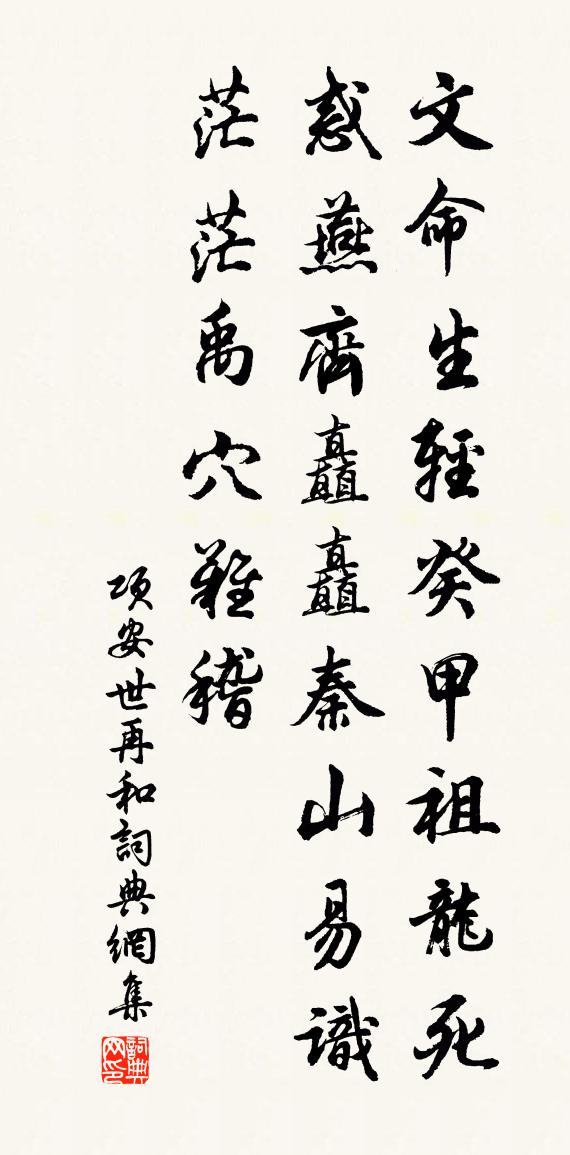 文命生輕癸甲祖龍死
惑燕齊矗矗秦山易識
茫茫禹穴難稽
项安世再和詞典網集
詞典网印